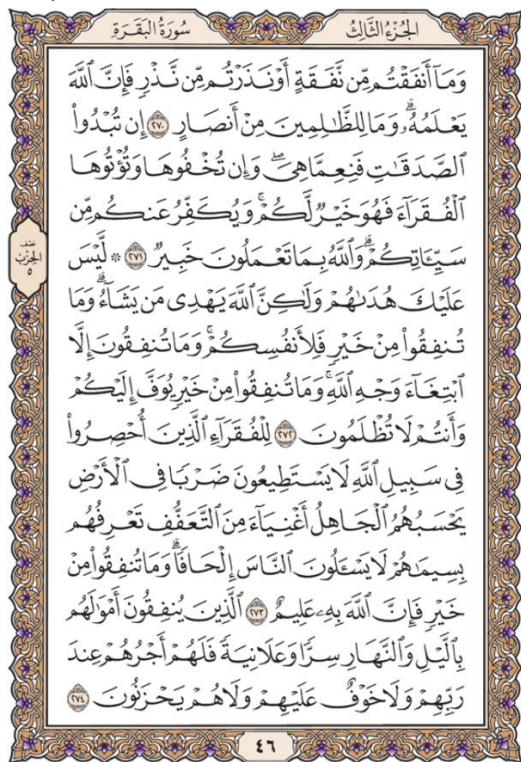 سُورَةُ البَقَرَةِ
الجُزْءُ الثَّالِثُ
وَمَآ أَنفَقْتُم مِّن نَّفَقَةٍ أَوْ نَذَرْتُم مِّن نَّذْرٍ فَإِنَّ ٱللَّهَ
يَعْلَمُهُۥۗ وَمَا لِلظَّٰلِمِينَ مِنْ أَنصَارٍ ٢٧٠ إِن تُبْدُوا۟
ٱلصَّدَقَٰتِ فَنِعِمَّا هِىَۖ وَإِن تُخْفُوهَا وَتُؤْتُوهَا
ٱلْفُقَرَآءَ فَهُوَ خَيْرٌ لَّكُمْۚ وَيُكَفِّرُ عَنكُم مِّن
سَيِّـَٔاتِكُمْۗ وَٱللَّهُ بِمَا تَعْمَلُونَ خَبِيرٌ ٢٧١ ۞ لَّيْسَ
عَلَيْكَ هُدَىٰهُمْ وَلَٰكِنَّ ٱللَّهَ يَهْدِى مَن يَشَآءُۗ وَمَا
تُنفِقُوا۟ مِنْ خَيْرٍ فَلِأَنفُسِكُمْۚ وَمَا تُنفِقُونَ إِلَّا
ٱبْتِغَآءَ وَجْهِ ٱللَّهِۚ وَمَا تُنفِقُوا۟ مِنْ خَيْرٍ يُوَفَّ إِلَيْكُمْ
وَأَنتُمْ لَا تُظْلَمُونَ ٢٧٢ لِلْفُقَرَآءِ ٱلَّذِينَ أُحْصِرُوا۟
فِى سَبِيلِ ٱللَّهِ لَا يَسْتَطِيعُونَ ضَرْبًا فِى ٱلْأَرْضِ
يَحْسَبُهُمُ ٱلْجَاهِلُ أَغْنِيَآءَ مِنَ ٱلتَّعَفُّفِ تَعْرِفُهُم
بِسِيمَٰهُمْ لَا يَسْـَٔلُونَ ٱلنَّاسَ إِلْحَافًاۗ وَمَا تُنفِقُوا۟ مِنْ
خَيْرٍ فَإِنَّ ٱللَّهَ بِهِۦ عَلِيمٌ ٢٧٣ ٱلَّذِينَ يُنفِقُونَ أَمْوَٰلَهُم
بِٱلَّيْلِ وَٱلنَّهَارِ سِرًّا وَعَلَانِيَةً فَلَهُمْ أَجْرُهُمْ عِندَ
رَبِّهِمْ وَلَا خَوْفٌ عَلَيْهِمْ وَلَا هُمْ يَحْزَنُونَ ٢٧٤
نصف
الحزب
٥
٤٦